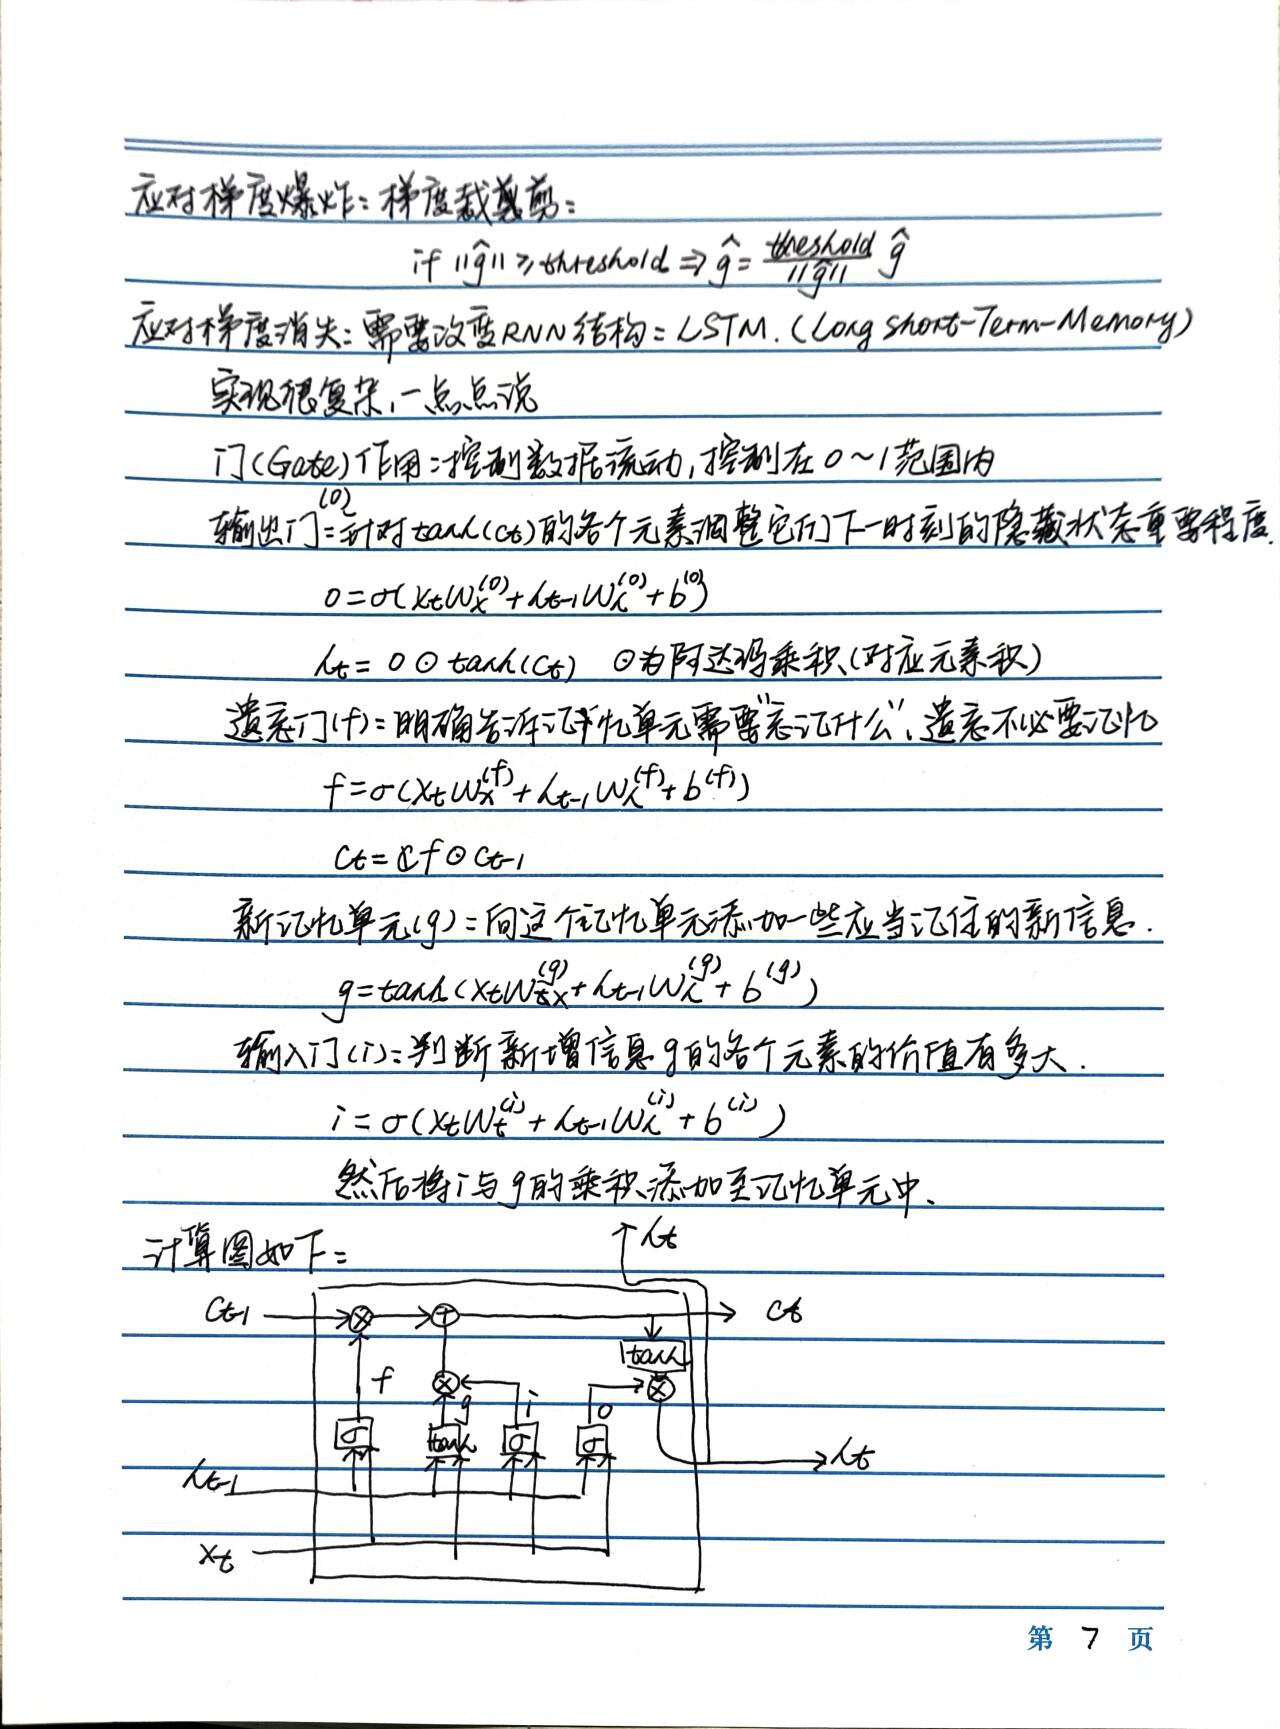 应对梯度爆炸：梯度裁剪：
if ||ĝ|| ≥ threshold ⇒ ĝ = threshold/||ĝ|| ĝ
应对梯度消失：需要改变RNN结构：LSTM.（Long short-Term-Memory）
实现很复杂，一点点说
门（Gate）作用：控制数据流动，控制在0～1范围内
输出门(o)：针对tanh(ct)的各个元素调整它们下一时刻的隐藏状态重要程度.
o = σ(xtWx^(o) + ht-1Wh^(o) + b^(o))
ht = o ⊙ tanh(ct) ⊙为阿达玛乘积（对应元素积）
遗忘门(f)：明确告诉记忆单元需要“忘记什么”，遗忘不必要记忆
f = σ(xtWx^(f) + ht-1Wh^(f) + b^(f))
ct = f ⊙ ct-1
新记忆单元(g)：向这个记忆单元添加一些应当记住的新信息.
g = tanh(xtWx^(g) + ht-1Wh^(g) + b^(g))
输入门(i)：判断新增信息g的各个元素的价值有多大.
i = σ(xtWt^(i) + ht-1Wh^(i) + b^(i))
然后将i与g的乘积添加至记忆单元中、
计算图如下：
ht
ct-1 × + ct
tanh
f × i o ×
g
σ tanh σ σ
ht
ht-1
xt
第 7 页